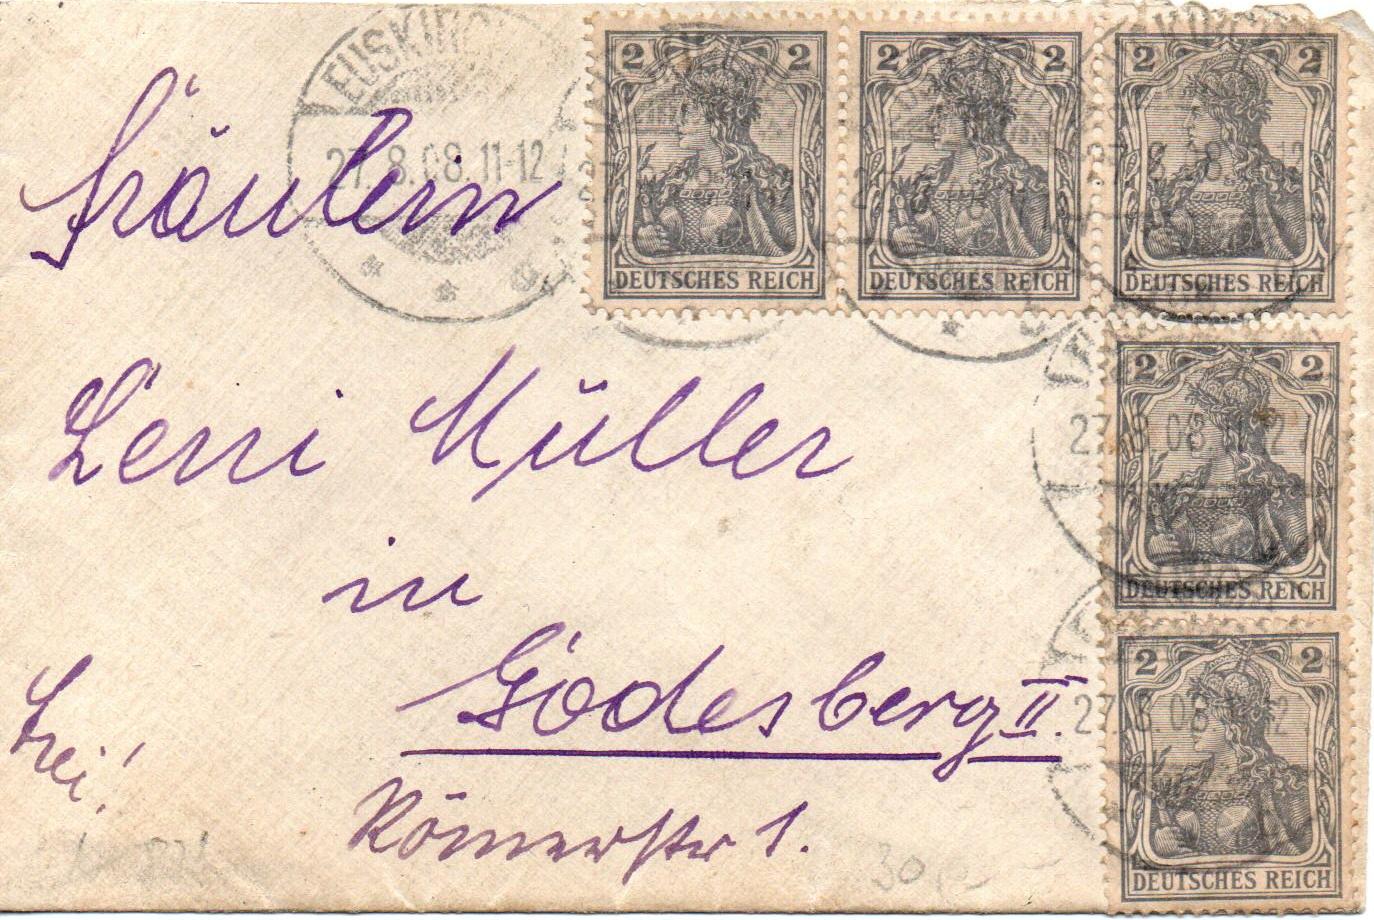 EUSKIRCHEN
27.8.08.11-12
2 2
DEUTSCHES REICH
2 2
DEUTSCHES REICH
2 2
DEUTSCHES REICH
2 2
DEUTSCHES REICH
2 2
DEUTSCHES REICH
Fräulein
Leni Müller
in
Godesberg II.
Römerstr 1.
frei!
30